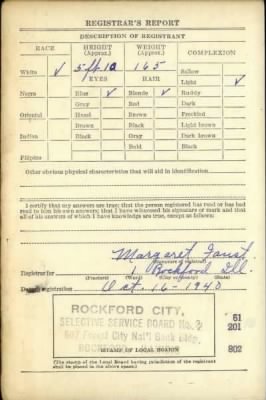 REGISTRAR'S REPORT
DESCRIPTION OF REGISTRANT
RACE HEIGHT (Approx.) WEIGHT (Approx.) COMPLEXION
White ✓ 5 ft 10 165 Sallow
EYES HAIR Light ✓
Negro Blue ✓ Blonde ✓ Ruddy
Gray Red Dark
Oriental Hazel Brown Freckled
Brown Black Light brown
Indian Black Gray Dark brown
Bald Black
Filipino
Other obvious physical characteristics that will aid in identification
I certify that my answers are true; that the person registered has read or has had
read to him his own answers; that I have witnessed his signature or mark and that
all of his answers of which I have knowledge are true, except as follows:
Margaret
(Signature of registrar)
Registrar for 1 Rockford Ill.
(Precinct) (Ward) (City or county) (State)
Date of registration Oct. 16-1940
ROCKFORD CITY, 61
SELECTIVE SERVICE BOARD No. 2 201
607 Forest City Nat'l Bank Bldg. 802
ROCKFORD
(STAMP OF LOCAL BOARD)
(The stamp of the Local Board having jurisdiction of the registrant
shall be placed in the above space.)